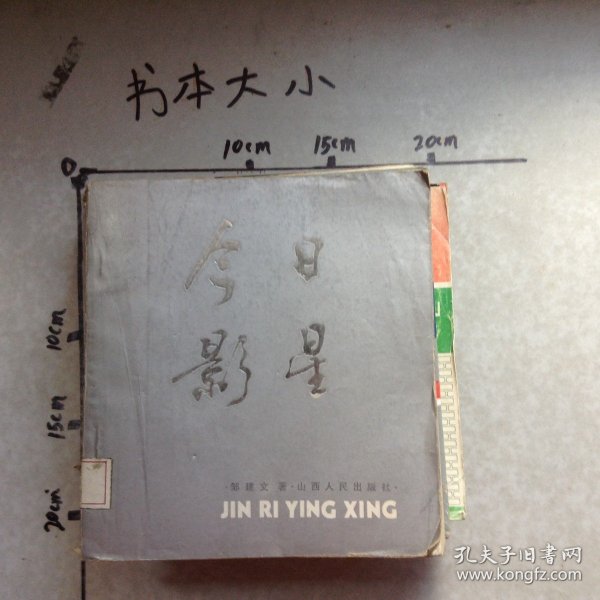 书本大小
0 10cm 15cm 20cm
10cm
15cm
20cm
今日
影星
·邹建文 著·山西人民出版社·
JIN RI YING XING
孔夫子旧书网
www.kongfz.com